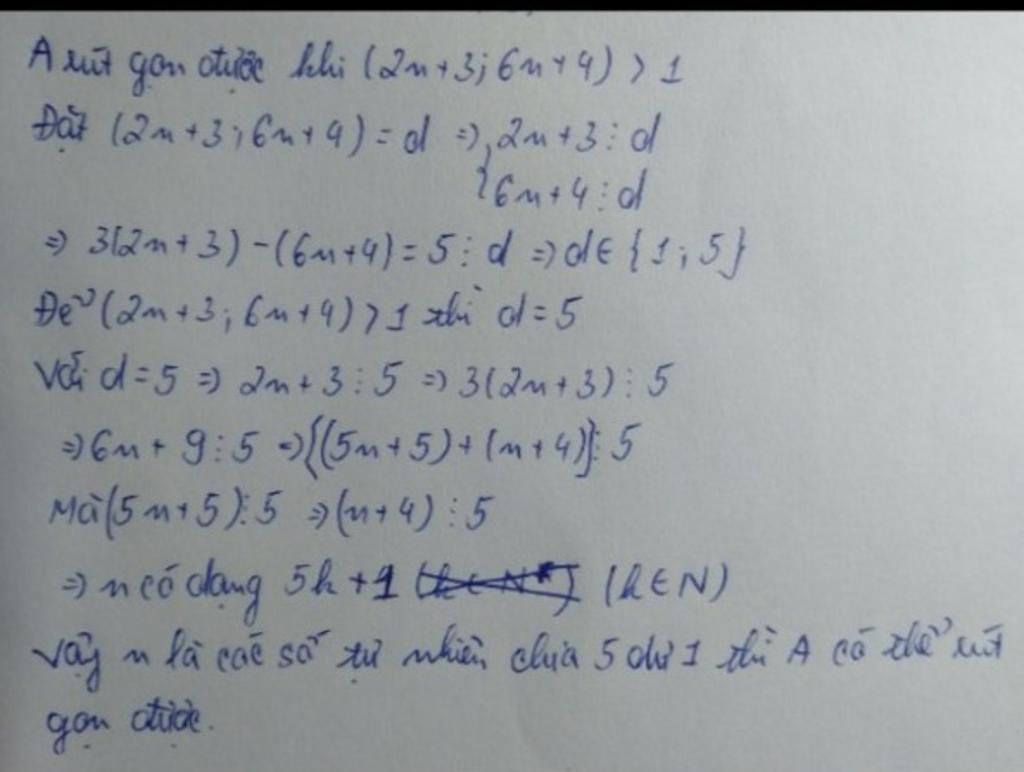 A rút gọn được khi (2n+3; 6n+4) > 1
Đặt (2n+3; 6n+4) = d => { 2n+3 ⋮ d
6n+4 ⋮ d
=> 3(2n+3) - (6n+4) = 5 ⋮ d => d ∈ {1; 5}
Để (2n+3; 6n+4) > 1 thì d = 5
Với d = 5 => 2n+3 ⋮ 5 => 3(2n+3) ⋮ 5
=> 6n + 9 ⋮ 5 => {(5n+5) + (n+4)} ⋮ 5
Mà (5n+5) ⋮ 5 => (n+4) ⋮ 5
=> n có dạng 5k+1 (k ∈ N*) (k ∈ N)
Vậy n là các số tự nhiên chia 5 dư 1 thì A có thể rút
gọn được.